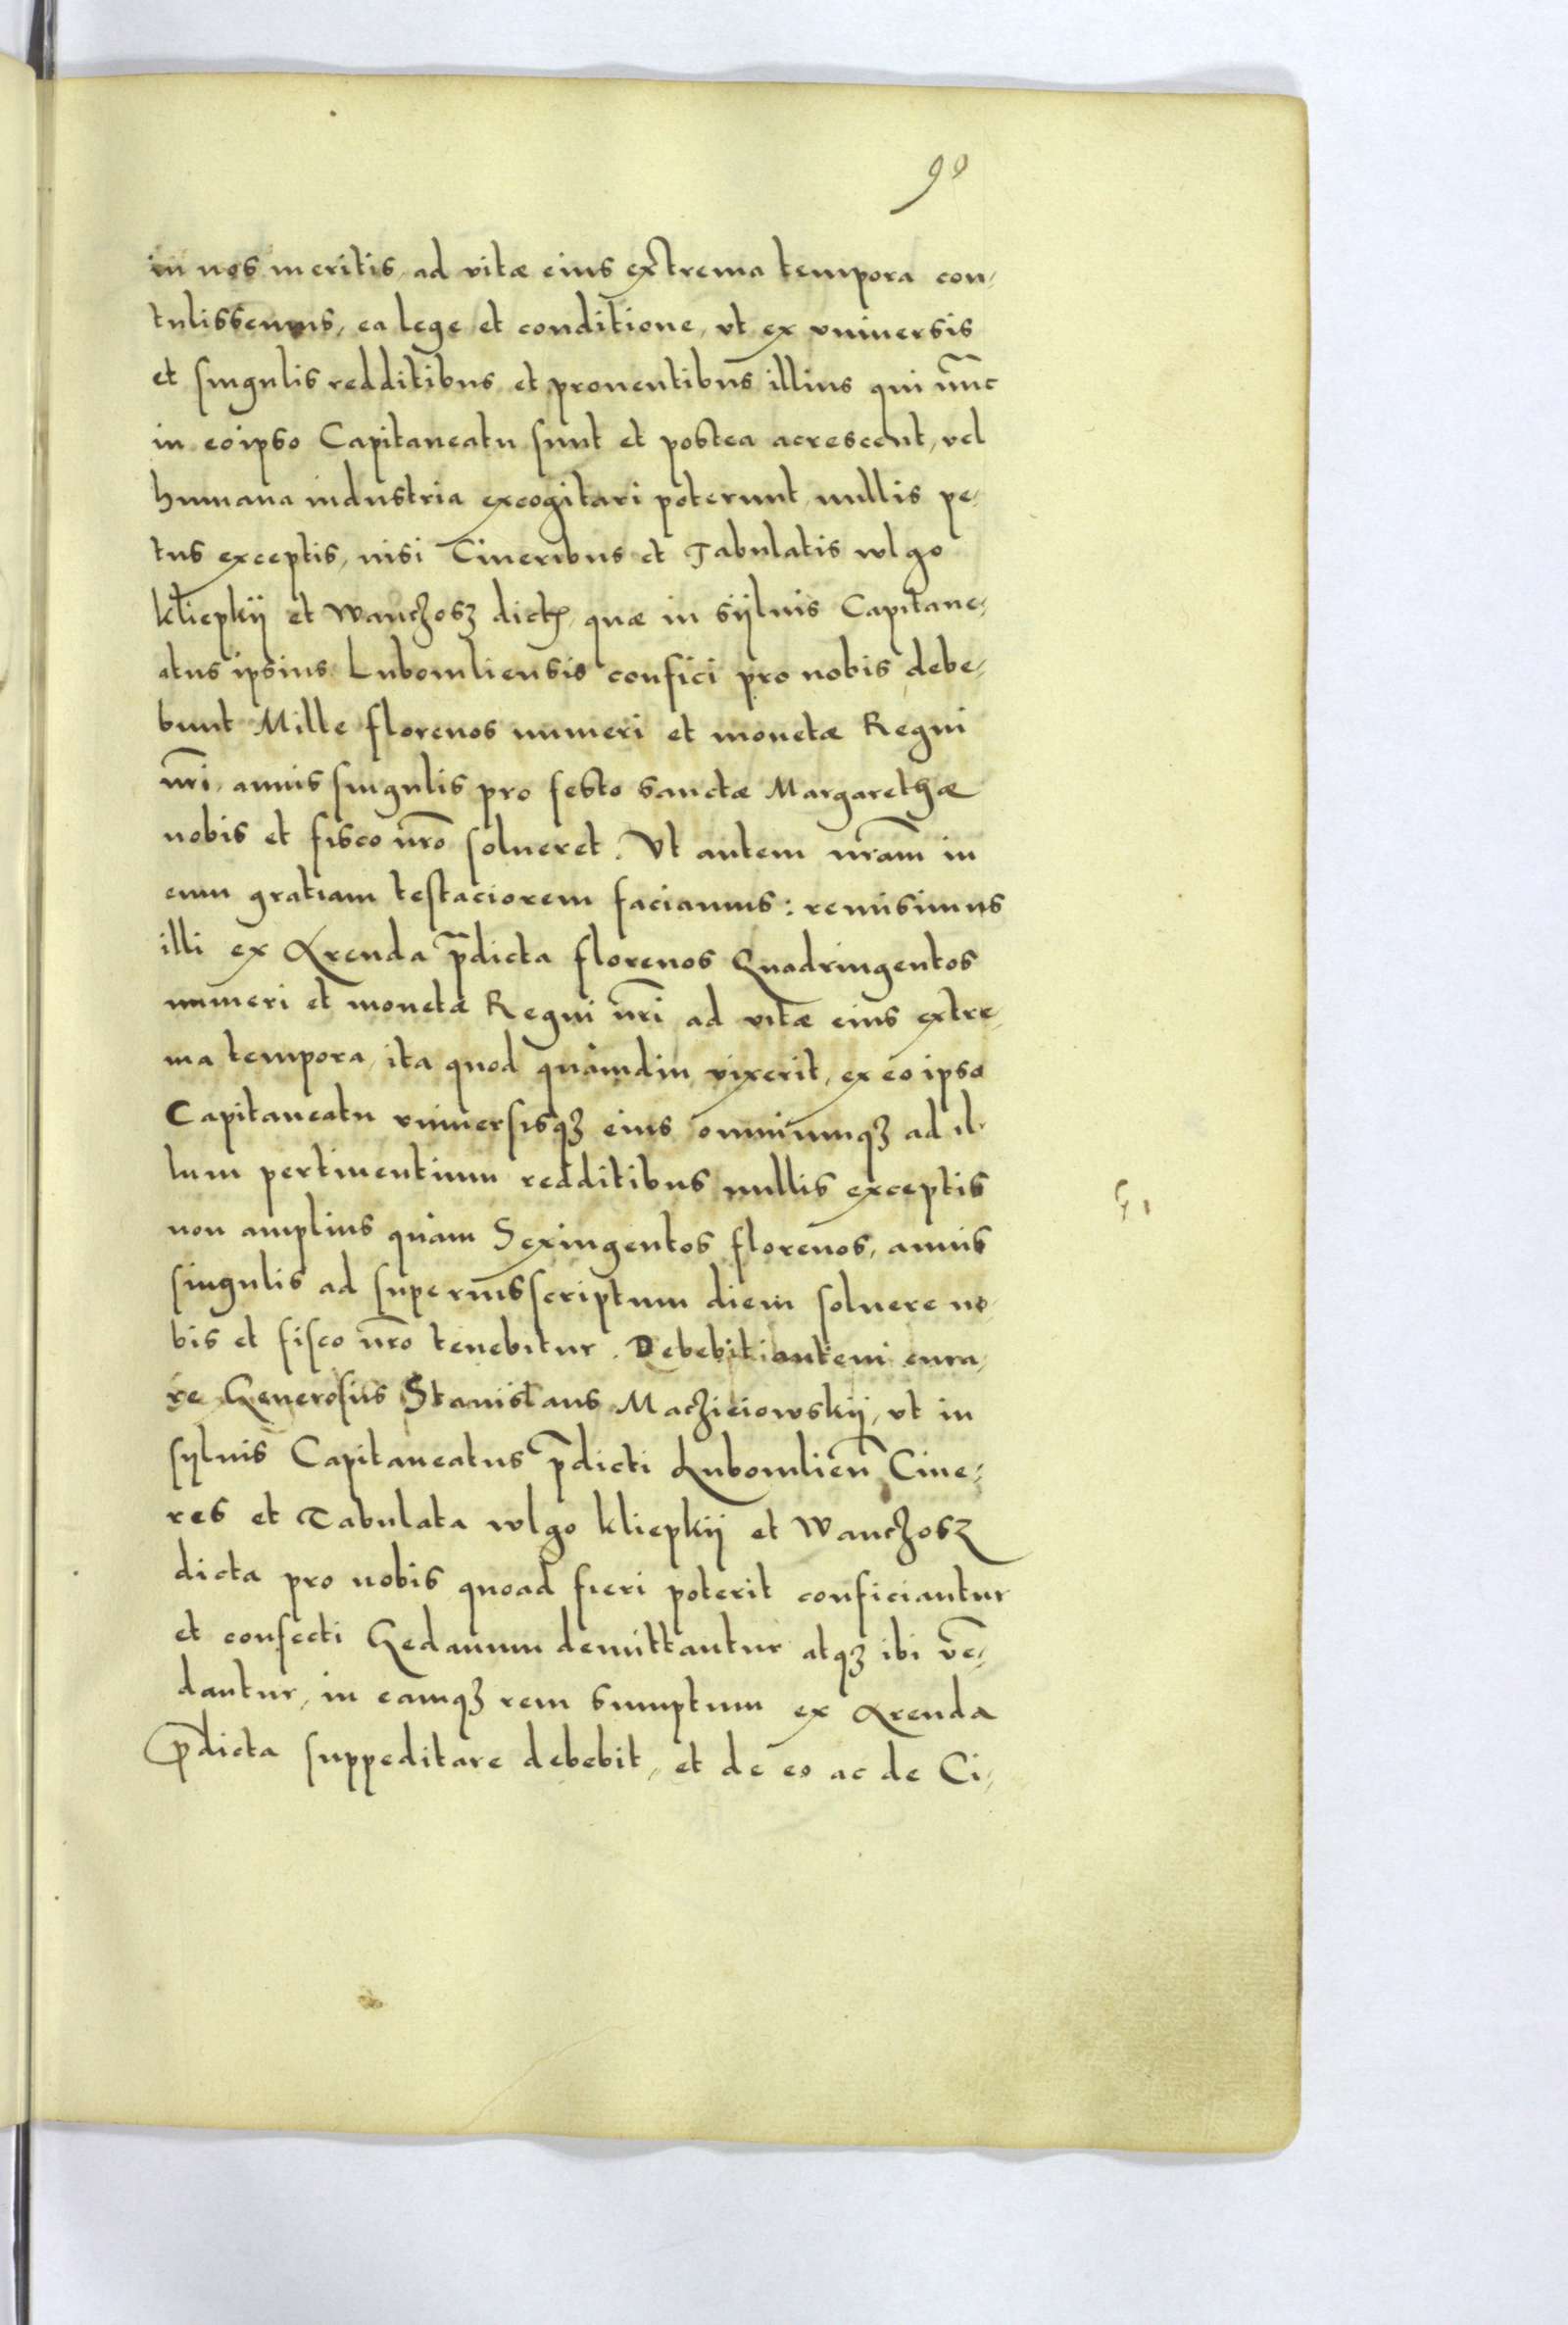 90
in nos meritis, ad vitæ eius extrema tempora con,
tulissemus, ea lege et conditione, vt ex vniuersis
et singulis redditibus et prouentibus illius qui nũnc
in eoipso Capitaneatu sunt et postea acrescent, vel
humana industria excogitari poterunt, nullis pe,
tus exceptis, nisi Cineribus et Tabulatis wlgo
kliepkÿ et Wanczosz dict, quæ in sÿluis Capitane,
atus ipsius Lubomliensis confici pro nobis debe,
bunt Mille florenos numeri et monetæ Regni
nr̃i, annis singulis pro festo sanctæ Margarethæ
nobis et fisco nr̃o solueret. Vt autem nr̃am in
eum gratiam testaciorem faciamus: remisimus
illi ex Arenda p̃dicta florenos Quadringentos
numeri et monetæ Regni nr̃i ad vitæ eius extre,
ma tempora, ita quod quamdiu vixerit, ex eo ipso
Capitaneatu vniuersisqȝ eius omniumqȝ ad il,
lum pertinentium redditibus nullis exceptis
non amplius quam Sexingentos florenos, annis
singulis ad superiusscriptum diem soluere no,
bis et fisco nr̃o tenebitur. Debebit autem cura,
re Generosus Stanislaus Macziciowskÿ, vt in
sÿluis Capitaneatus p̃dicti Lubomlien̄ Cine,
res et Tabulata wlgo kliepkÿ et Wanczosz
dicta pro nobis quoad fieri poterit conficiantur
et confecti Gedanum demittantur atqȝ ibi vẽ,
dantur, in eamqȝ rem sumptum ex Arenda
p̃dicta suppeditare debebit, et de eo ac de Ci,